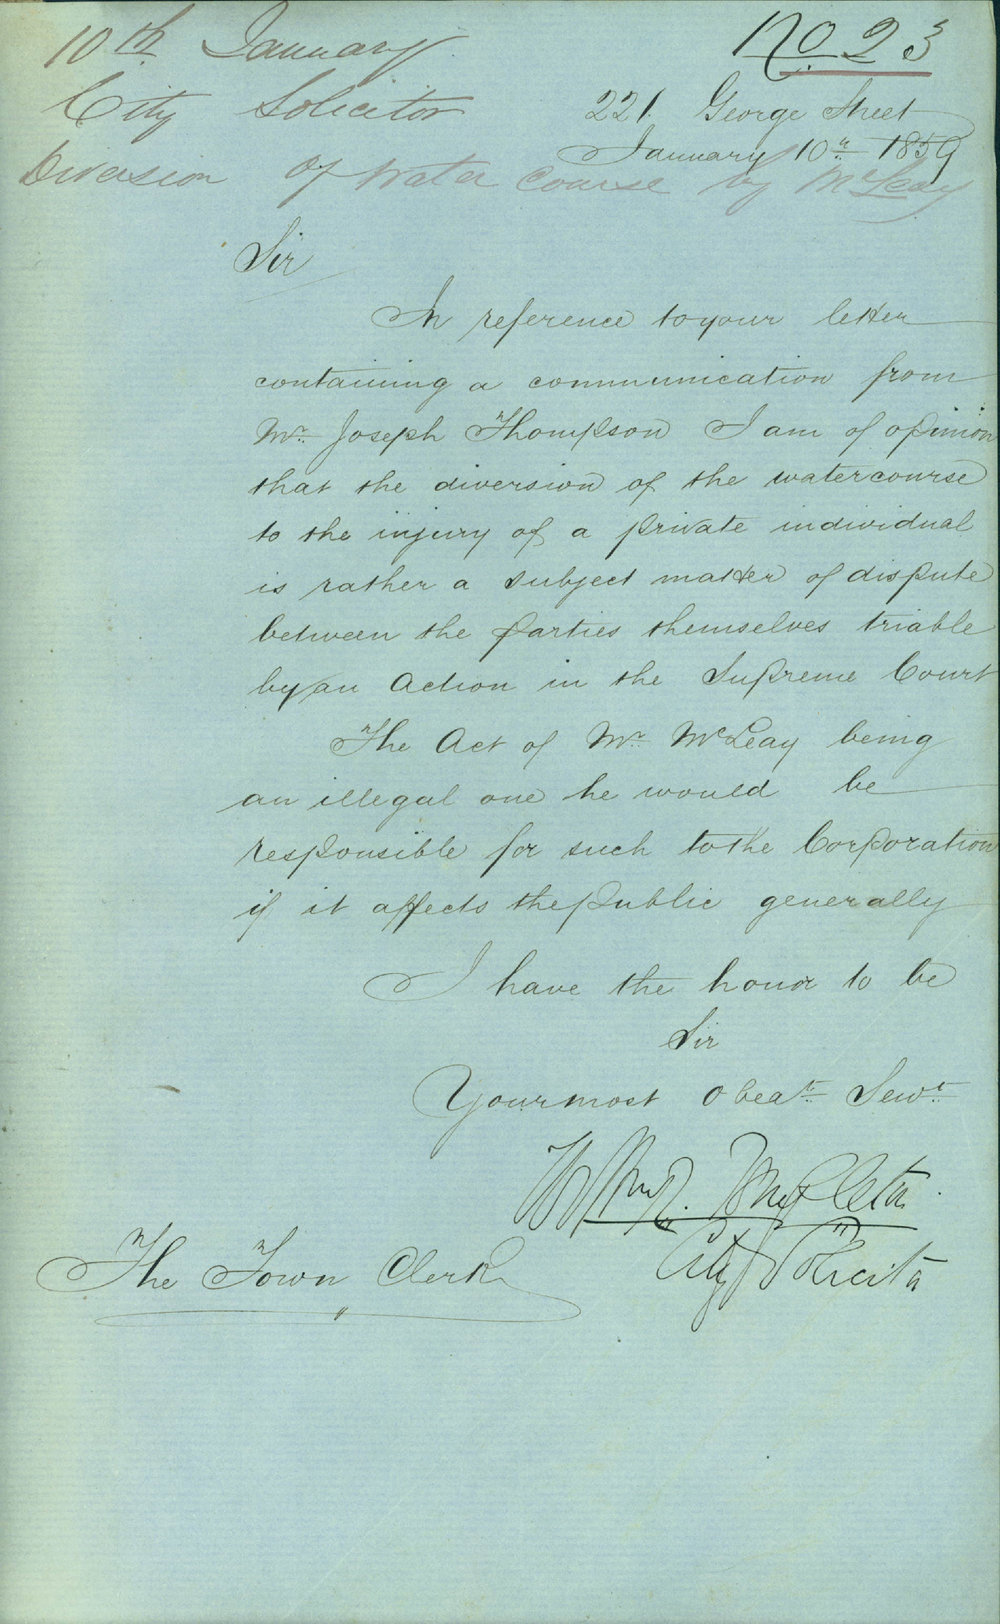 10th January
No 23
City Solicitor
221 George Street
January 10th 1859
Diversion of Water Course by McLeay
Sir
In reference to your letter
containing a communication from
Mr. Joseph Thompson I am of opinion
that the diversion of the watercourse
to the injury of a private individual
is rather a subject matter of dispute
between the parties themselves triable
by an Action in the Supreme Court
The Act of Mr. McLeay being
an illegal one he would be
responsible for such to the Corporation
if it affects the public generally
I have the honor to be
Sir
Your most Obedt. Servt.
City Solicitor
The Town Clerk